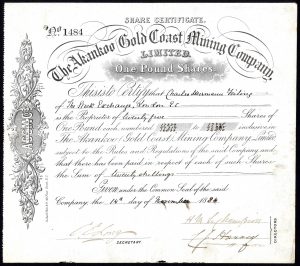 SHARE CERTIFICATE.
No 1484
The Akankoo Gold Coast Mining Company,
LIMITED.
One Pound Shares.
This is to Certify that Charles Hermann
of The Stock Exchange, London E.C.
is the Proprietor of twenty five Shares of
One Pound each numbered to inclusive in
The Akankoo Gold Coast Mining Company Limited
subject to the Rules and Regulations of the said Company and
that there has been paid in respect of each of such Shares
the Sum of twenty shillings
Given under the Common Seal of the said
Company, the 14th day of November 188
SECRETARY.
DIRECTORS